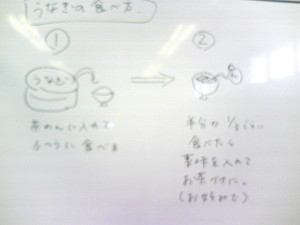 うなぎの食べ方
①
②
うなぎ
茶わんに入れて
ふつうに食べる
半分か1/3ぐらい
食べたら
薬味を入れて
お茶づけに。
(お好みで)